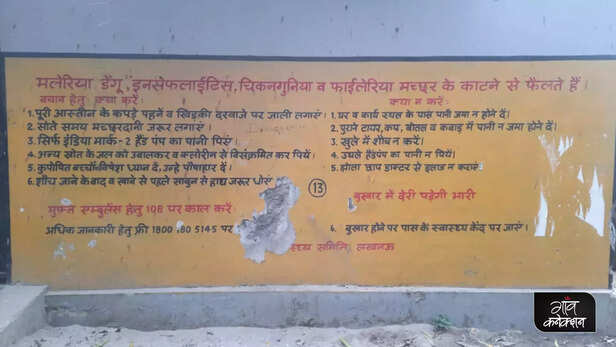 मलेरिया डेंगू, इनसेफलाईटिस, चिकनगुनिया व फाईलेरिया मच्छर के काटने से फैलते हैं।
बचाव हेतु क्या करें।
1. पूरी आस्तीन के कपड़े पहनें व खिड़की दरवाजे पर जाली लगाएं।
2. सोते समय मच्छरदानी जरूर लगाएं।
3. सिर्फ इंडिया मार्क-2 हैंड पंप का पानी पिएं।
4. अन्य स्रोत के जल को उबालकर व क्लोरीन से विसंक्रमित कर पियें।
5. कुपोषित बच्चों पर विशेष ध्यान दें, उन्हे पौष्टाहार दें।
6. शौच जाने के बाद व खाने से पहले साबुन से हाथ जरूर धोएं
मुफ्त एम्बुलेंस हेतु 108 पर काल करें
अधिक जानकारी हेतु फ्री 1800 180 5145 पर
क्या न करें।
1. घर व कार्य स्थल के पास पानी जमा न होने दें।
2. पुराने टायर, कप, बोतल व कबाड़ में पानी न जमा होने दें।
3. खुले में शौच न करें।
4. उथले हैंडपंप का पानी न पियें।
5. झोला छाप डाक्टर से इलाज न कराएं
13
बुखार में देरी पड़ेगी भारी
6. बुखार होने पर पास के स्वास्थ्य केंद्र पर जाएं।
समिति, लखनऊ
गाँव
कनेक्शन